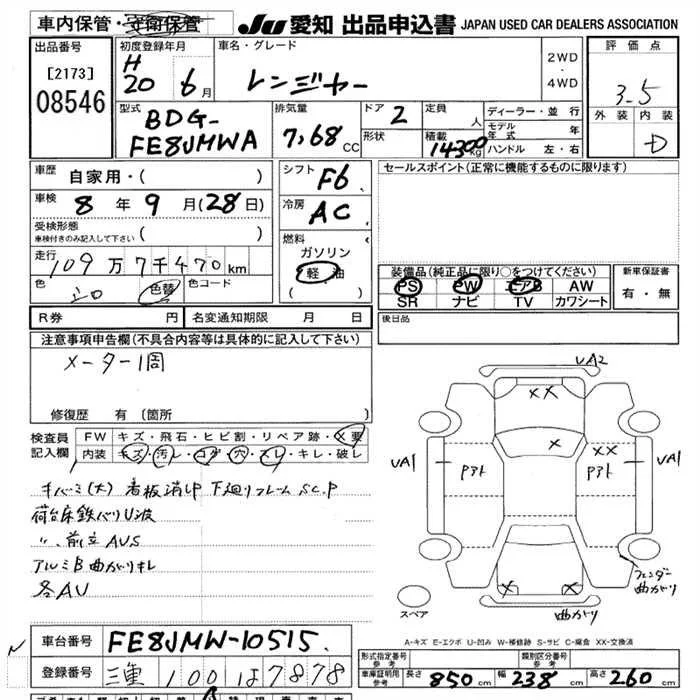 車内保管・屋衛保管
JU 愛知 出品申込書 JAPAN USED CAR DEALERS ASSOCIATION
出品番号
[2173]
08546
初度登録年月
H
20年 6月
車名・グレード
レンジャー
2WD
・
4WD
評価点
3.5
外装 内装
D
型式
BDG-
FE8JMWA
排気量
7,68 CC
ドア 2
形状
定員 人
積載 14300 kg
ディーラー・並行
モデル年式 年
ハンドル 左・右
車歴 自家用・( )
車検 8年 9月(28日)
受検形態
車検付きのみ記入して下さい ( )
走行 109万7千470km
色
色替
色コード
シフト F6
冷房 AC
燃料
ガソリン
軽油
( )
セールスポイント(正常に機能するものに限ります)
装備品(純正品に限り○をつけてください)
PS PW エアB AW
SR ナビ TV カワシート
新車保証書
有・無
R券 円 名変通知期限 月 日
後日品
注意事項申告欄(不具合内容等は具体的に記入して下さい)
メーター1周
修復歴 有(箇所 )
検査員記入欄
FW キズ・飛石・ヒビ割・リペア跡・X要
内装 キズ・汚れ・コゲ・穴・スレ・キレ・破レ
キバミ(大) 看板消し中 下廻りフレーム S.C.P
荷台床鉄バリU波
〃 前立AUS
アルミB曲がりキレ
各AU
UA2
XX
X
XX
UA1
P3ト
P3ト
UA1
X
X
フェンダー曲がり
曲がり
スペア
A-キズ E-エクボ U-凹み W-補修跡 S-サビ C-腐食 XX-交換済
車台番号 FE8JMW-10515
登録番号 三重 100 は 7878
形式指定番号 参考
類別区分番号 参考
車庫証明用参考 長さ 850cm 幅 238cm 高さ 260cm